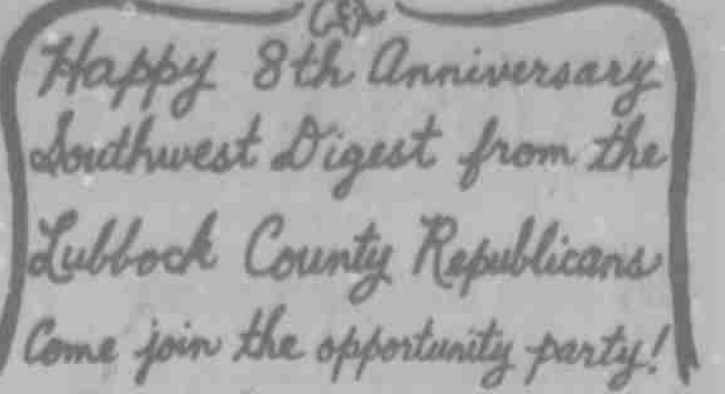 Happy 8th Anniversary
Southwest Digest from the
Lubbock County Republicans
Come join the opportunity party!